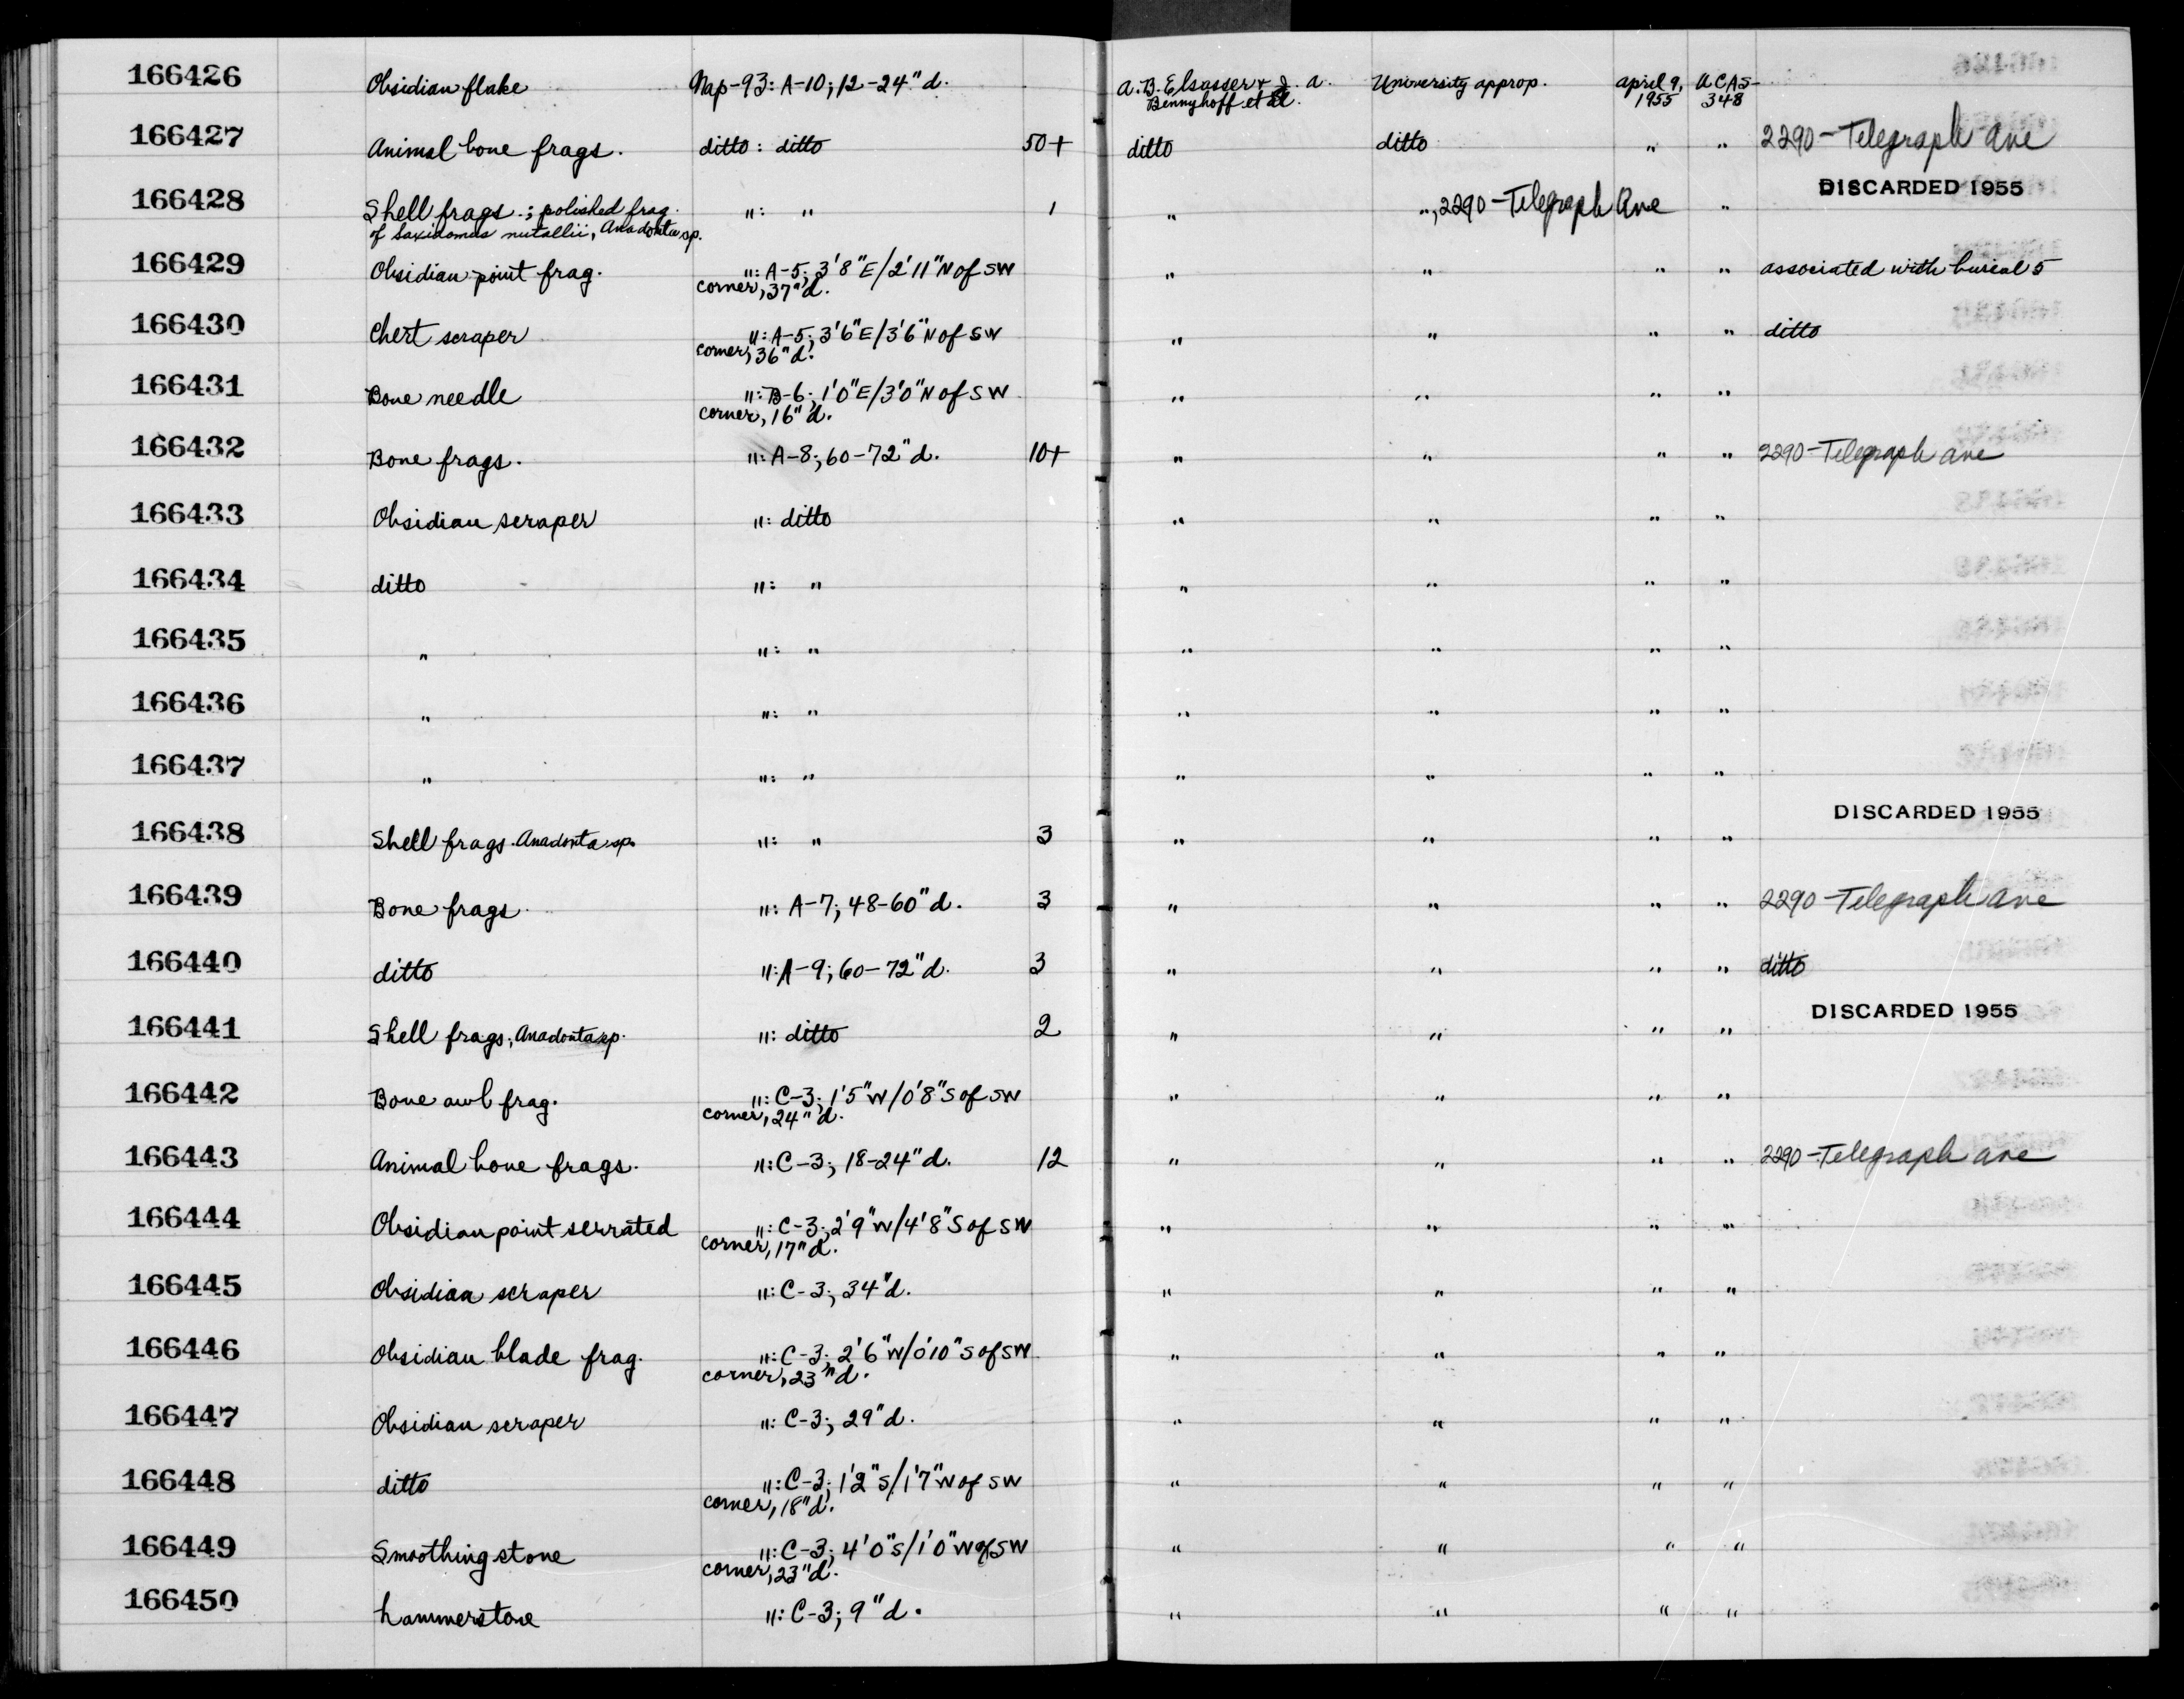 166426 Obsidian flake Nap-93: A-10; 12-24" d. A.B. Elsasser & J. A. Bennyhoff et al. University approp. April 9, 1955 UCAS-348
166427 Animal bone frags. ditto: ditto 50+ ditto ditto " " 2290-Telegraph Ave
166428 Shell frags.; polished frag. of Saxidomus nutallii, Anadonta sp. ": " 1 " ", 2290-Telegraph Ave " DISCARDED 1955
166429 Obsidian point frag. ": A-5; 3'8"E/2'11"N of SW corner, 37"d. " " " " associated with burial 5
166430 Chert scraper ": A-5; 3'6"E/3'6"N of SW corner, 36"d. " " " " ditto
166431 Bone needle ": B-6; 1'0"E/3'0"N of SW corner, 16"d. " " " "
166432 Bone frags. ": A-8; 60-72"d. 10+ " " " " 2290-Telegraph Ave
166433 Obsidian scraper ": ditto " " " "
166434 ditto ": " " " " "
166435 " ": " " " " "
166436 " ": " " " " "
166437 " ": " " " " "
166438 Shell frags. Anadonta sp. ": " 3 " " " " DISCARDED 1955
166439 Bone frags. ": A-7; 48-60"d. 3 " " " " 2290-Telegraph Ave
166440 ditto ": A-9; 60-72"d. 3 " " " " ditto
166441 Shell frags; Anadonta sp. ": ditto 2 " " " " DISCARDED 1955
166442 Bone awl frag. ": C-3; 1'5"W/0'8"S of SW corner, 24"d. " " " "
166443 Animal bone frags. ": C-3; 18-24"d. 12 " " " " 2290-Telegraph Ave
166444 Obsidian point serrated ": C-3; 2'9"W/4'8"S of SW corner, 17"d. " " " "
166445 Obsidian scraper ": C-3; 34"d. " " " "
166446 Obsidian blade frag. ": C-3; 2'6"W/0'10"S of SW corner, 23"d. " " " "
166447 Obsidian scraper ": C-3; 29"d. " " " "
166448 ditto ": C-3; 1'2"S/1'7"W of SW corner, 18"d. " " " "
166449 Smoothing stone ": C-3; 4'0"S/1'0"W of SW corner, 23"d. " " " "
166450 hammerstone ": C-3; 9"d. " " " "